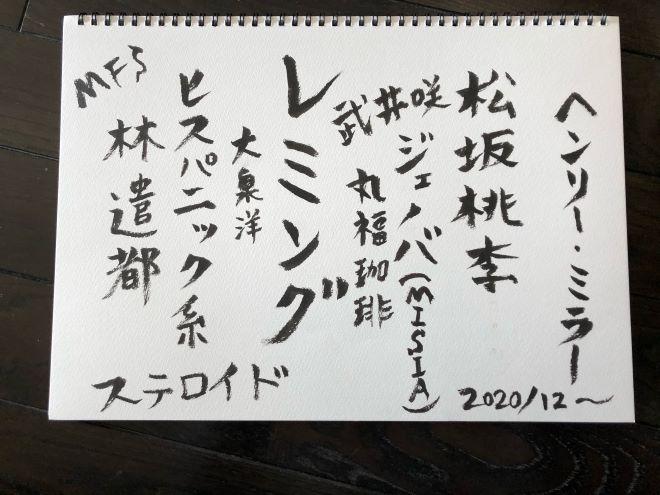 ヘンリー・ミラー
松坂桃李
2020/12〜
武井咲
ジェノバ(MISIA)
丸福珈琲
レミング
大泉洋
ヒスパニック系
林遣都
MFS
ステロイド